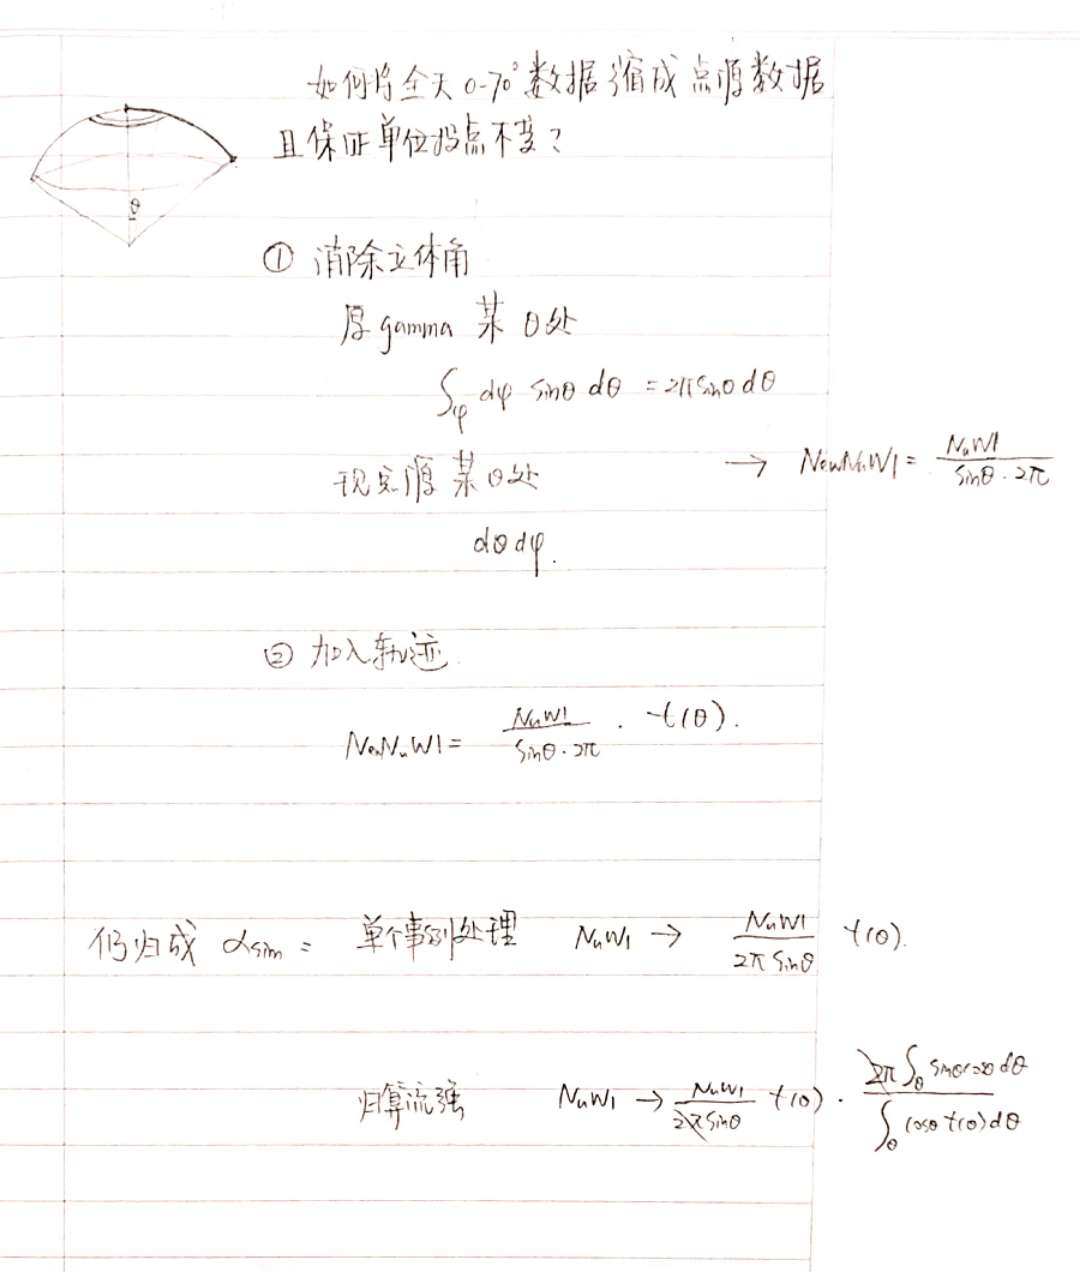 如何将全天 0-70° 数据缩成点源数据
且保证单位投点不变?
θ
① 消除立体角
原gamma 某 θ处
∫φ dφ sinθ dθ = 2π sinθ dθ
现点源 某θ处
→ NewNuW1 = NuW1 / (sinθ · 2π)
dθ dφ.
② 加入轨迹
NewNuW1 = NuW1 / (sinθ · 2π) · t(θ).
仍归成 αsim : 单个事例处理 NuW1 → NuW1 / (2π sinθ) t(θ).
归算流强 NuW1 → NuW1 / (2π sinθ) t(θ) · 2π ∫θ sinθ cosθ dθ / ∫θ cosθ t(θ) dθ